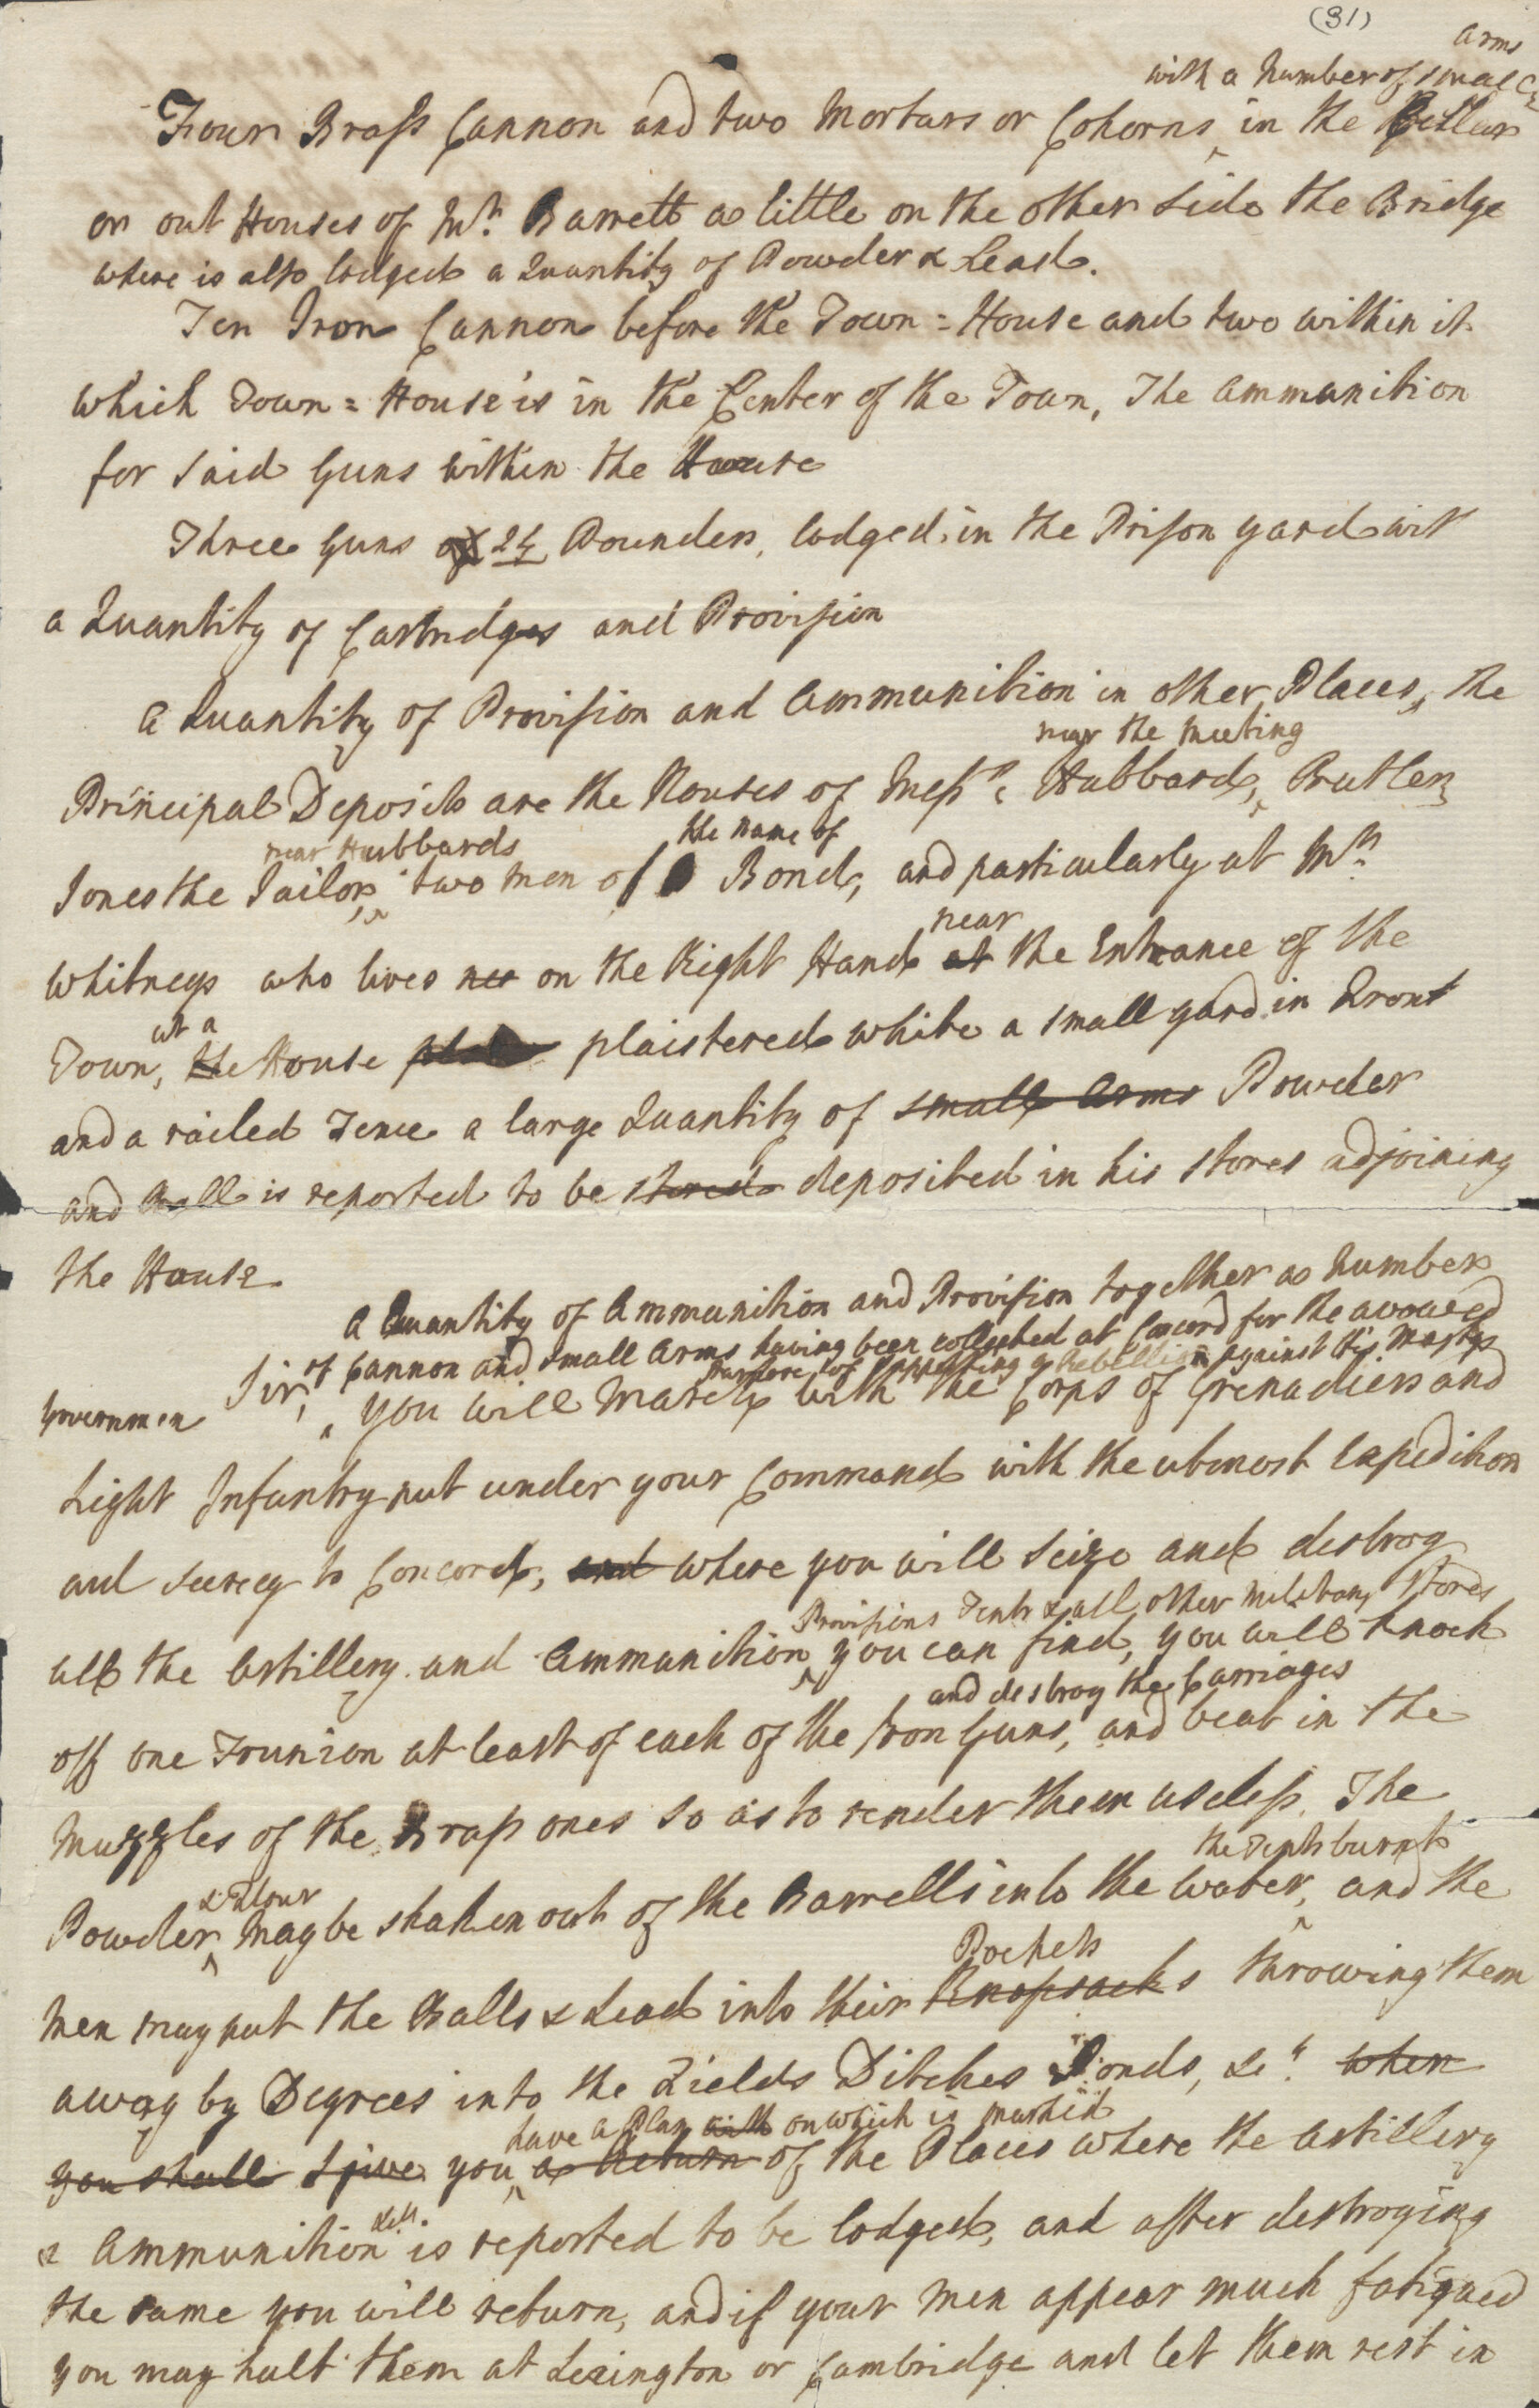 (31)
arms
with a Number of smal
Four Brass Cannon and two Mortars or Cohorns, in the Cellar
or out Houses of Mr. Barrett a little on the other Side the Bridge
where is also lodged a Quantity of Powder & Lead.
Ten Iron Cannon before the Town=House and two within it
which Town=House is in the Center of the Town, The ammunition
for said Guns within the House
Three Guns of 24 Pounders, lodged in the Prison yard wit
a Quantity of Cartridges and Provision
a Quantity of Provision and Ammunition in other Places, the
near the meeting
Principal Deposits are the Houses of Messrs. Hubbard, Butler,
near Hubbards
the name of
Jones the Tailor, two men of Bond, and particularly at Mr.
near
Whitneys who lives nee on the Right Hand at the Entrance of the
at a
Town, the House plaistered white a small yard in Front
and a railed Fence a large Quantity of small arms Powder
and Ball is reported to be stored deposited in his stores adjoining
the House.
A Quantity of Ammunition and Provision together a Number
of Cannon and small Arms having been collected at Concord for the avowed
purpose of supporting a Rebellion against His Majtys
Governmen Sir, you will March with the Corps of Grenadiers and
Light Infantry put under your Command with the utmost Expedition
and Secrecy to Concord, and where you will seize and destroy
Provisions Tents & all other military stores
all the Artillery and Ammunition, you can find, you will knock
and destroy the Carriages
off one Trunion at least of each of the Iron Guns, and beat in the
Muzzles of the Brass ones so as to render them useless. The
& Flour
the Tents burnt
Powder, may be shaken out of the Barrells into the Water, and the
Pockets
Men may put the Balls & Lead into their Knapsacks throwing them
away by Degrees into the Fields Ditches Ponds, &c. when
have a Plan with on which is marked
you shall I give you a Return of the Places where the Artillery
&c.
& Ammunition is reported to be lodged, and after destroying
the same you will return, and if your Men appear much fatigued
you may halt them at Lexington or Cambridge and let them rest in